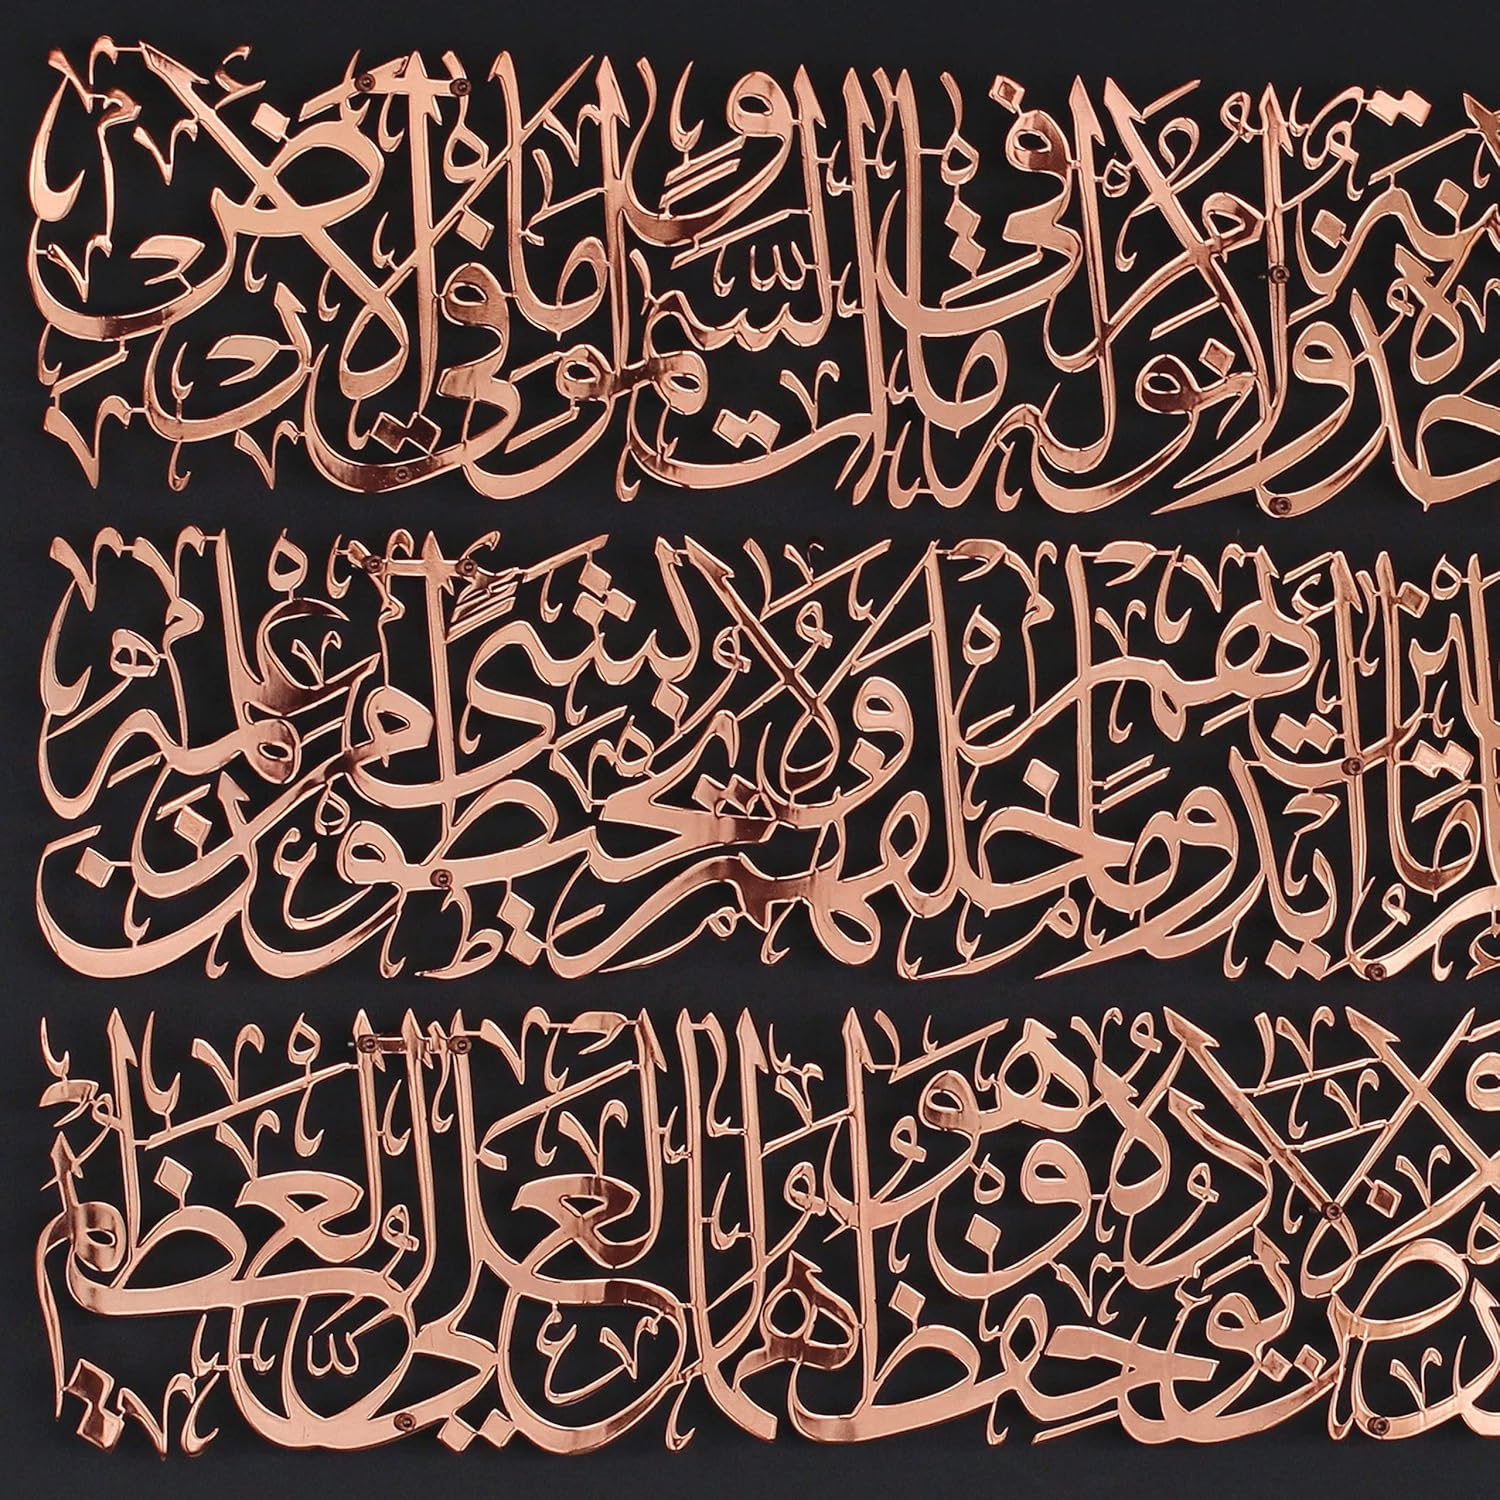 سنة ولا نوم له ما في السموات وما في الأرض
بين أيديهم وما خلفهم ولا يحيطون بشيء من علمه
ولا يؤده حفظهما وهو العلي العظيم